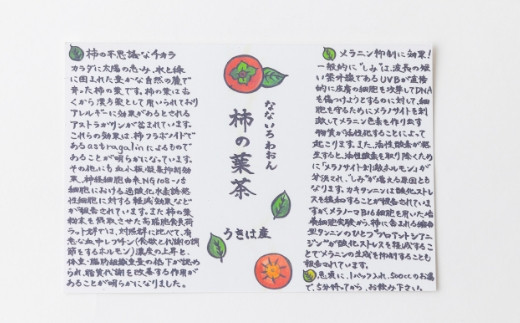 柿の不思議なチカラ
カラダに太陽の恵み、水と緑
に囲まれた豊かな自然の麓で
育った柿の葉です。柿の葉は古
くから漢方薬として用いられており
アレルギーに効果があるとされる
アストラガリンが含まれています。
これらの効果は、柿フラボノイドで
あるastragalinによるもので
あることが明らかになっています。
その他にも血小板凝集抑制効
果、神経細胞由来NG108-15
細胞における過酸化水素誘発
性細胞に対する軽減効果などが
報告されています。また柿の葉
粉末を摂取させた高脂肪食負荷
ラット群では、対照群に比べて、有
意な血中レプチン(食欲と代謝の調
節をするホルモン)濃度の上昇と、
体重・脂肪組織重量の低下が認め
られ、糖質代謝を改善する作用が
あることが明らかになりました。
なないろわおん
柿の葉茶
うきは産
メラニン抑制に効果!
一般的に"しみ"は、波長の短
い紫外線であるUVBが直接
的に皮膚の細胞を攻撃してDNA
を傷つけようとするのに対して、細
胞を守るためにメラノサイトを刺
激してメラニン色素を作り出す
物質が活性化することによって
起こります。また、活性酸素が発
生すると、活性酸素を取り除くため
に「メラノサイト刺激ホルモン」が
分泌され、"しみ"が増える原因とも
なります。カキタンニンは酸化ストレス
を緩和することが報告されていま
すが、メラノーマB16細胞を用いた培
養細胞実験から、柿に含まれる縮合
型タンニンのひとつ"プロアントシアニ
ジン"が酸化ストレスを軽減すること
でメラニンの生成を抑制することも
報告されています。
急須に、1パック入れ、500ccのお湯
で、5分待ってから、お飲み下さい。